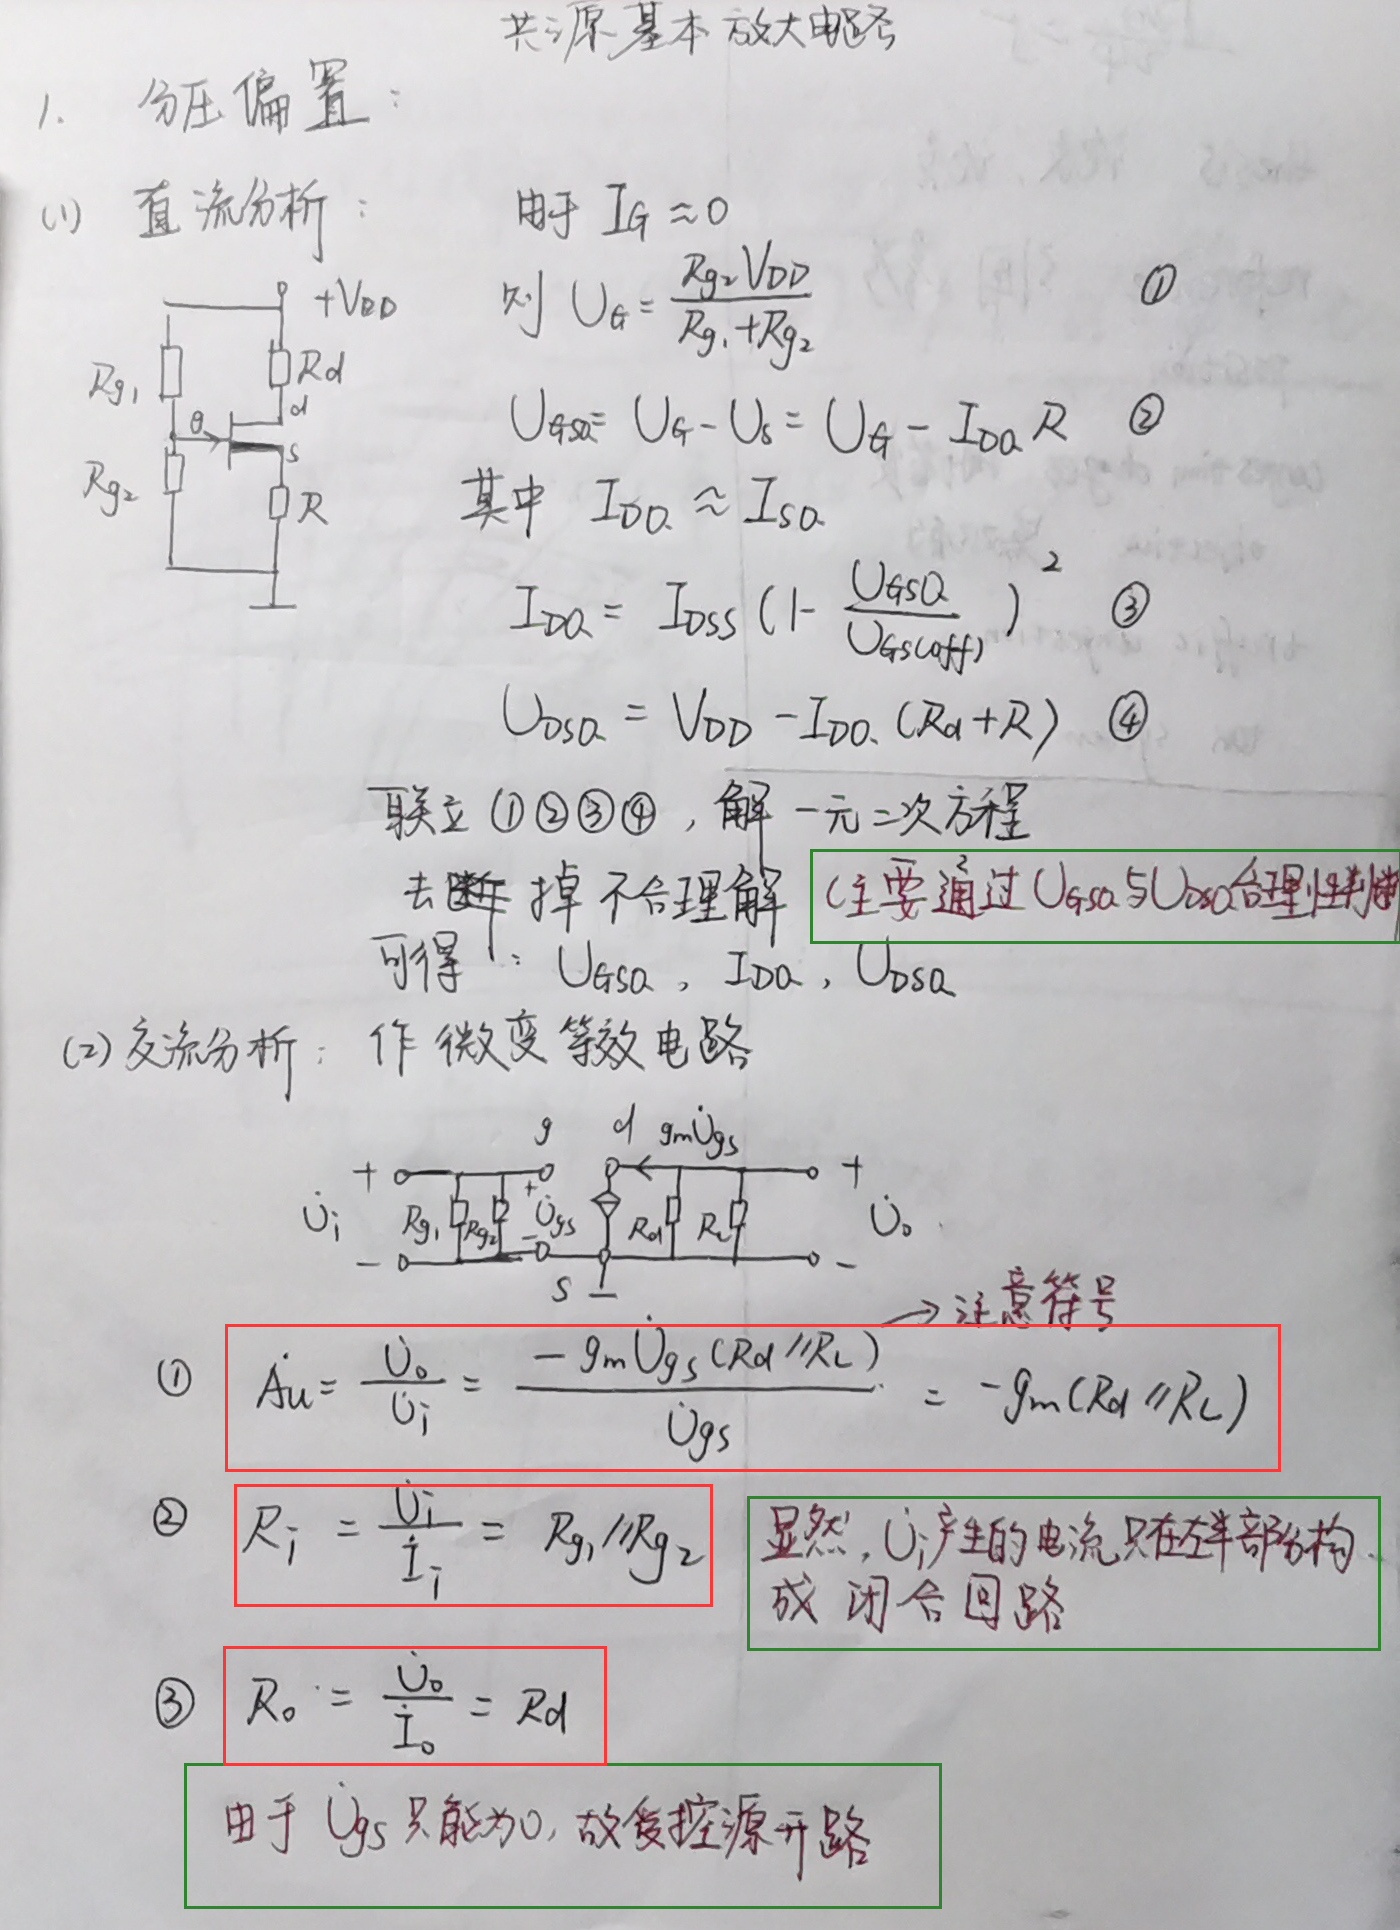 共源基本放大电路
1. 分压偏置:
(1) 直流分析: 由于 IG≈0
+VDD
Rg1
Rd
d
s
Rg2
R
则 UG = Rg2VDD / (Rg1+Rg2) ①
UGSQ = UG - US = UG - IDQ R ②
其中 IDQ ≈ ISQ
IDQ = IDSS (1 - UGSQ / UGS(off))² ③
UDSQ = VDD - IDQ (Rd+R) ④
联立①②③④, 解一元二次方程
去掉不合理解 (主要通过UGSQ与UDSQ合理性判断
可得: UGSQ, IDQ, UDSQ
(2) 交流分析: 作微变等效电路
g d gmU̇gs
+ +
U̇i Rg1 Rg2 + U̇gs - Rd RL U̇o
- -
S
→注意符号
① Ȧu = U̇o / U̇i = -gmU̇gs(Rd//RL) / U̇gs = -gm(Rd//RL)
② Ri = U̇i / İi = Rg1//Rg2
显然, U̇i产生的电流只在左半部分构
成闭合回路
③ Ro = U̇o / İo = Rd
由于 U̇gs只能为0, 故受控源开路